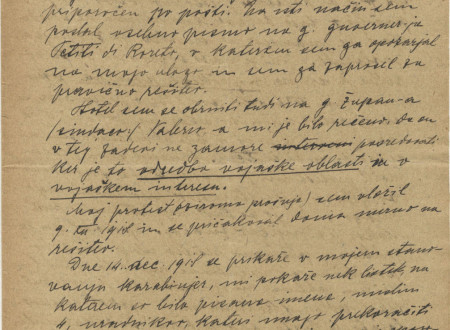 priporočen po pošti. Na isti način sem
poslal osebno pismo na g. guverner-ja
Petiti di Roreto, v katerem sem ga opozarjal
na mojo vlogo in sem ga zaprosil za
pravično rešitev.
Hotel sem se obrniti tudi na g. župan-a
(sindaco) Valerio a mi je bilo rečeno, da on
v tej zadevi ne zamore posredovati
ker je to odredba vojaške oblasti in v
vojaškem interesu.
Moj protest oziroma prošnjo sem vložil
9. t.m. 1918 in se pričakoval doma mirno na
rešitev.
Dne 14. dec. 1918 se prikaže v mojem stano-
vanju karabinjer, mi pokaže nek listek, na
katerem so bila pisana imena, mislim
4, uradnikov, kateri imajo prekoračiti